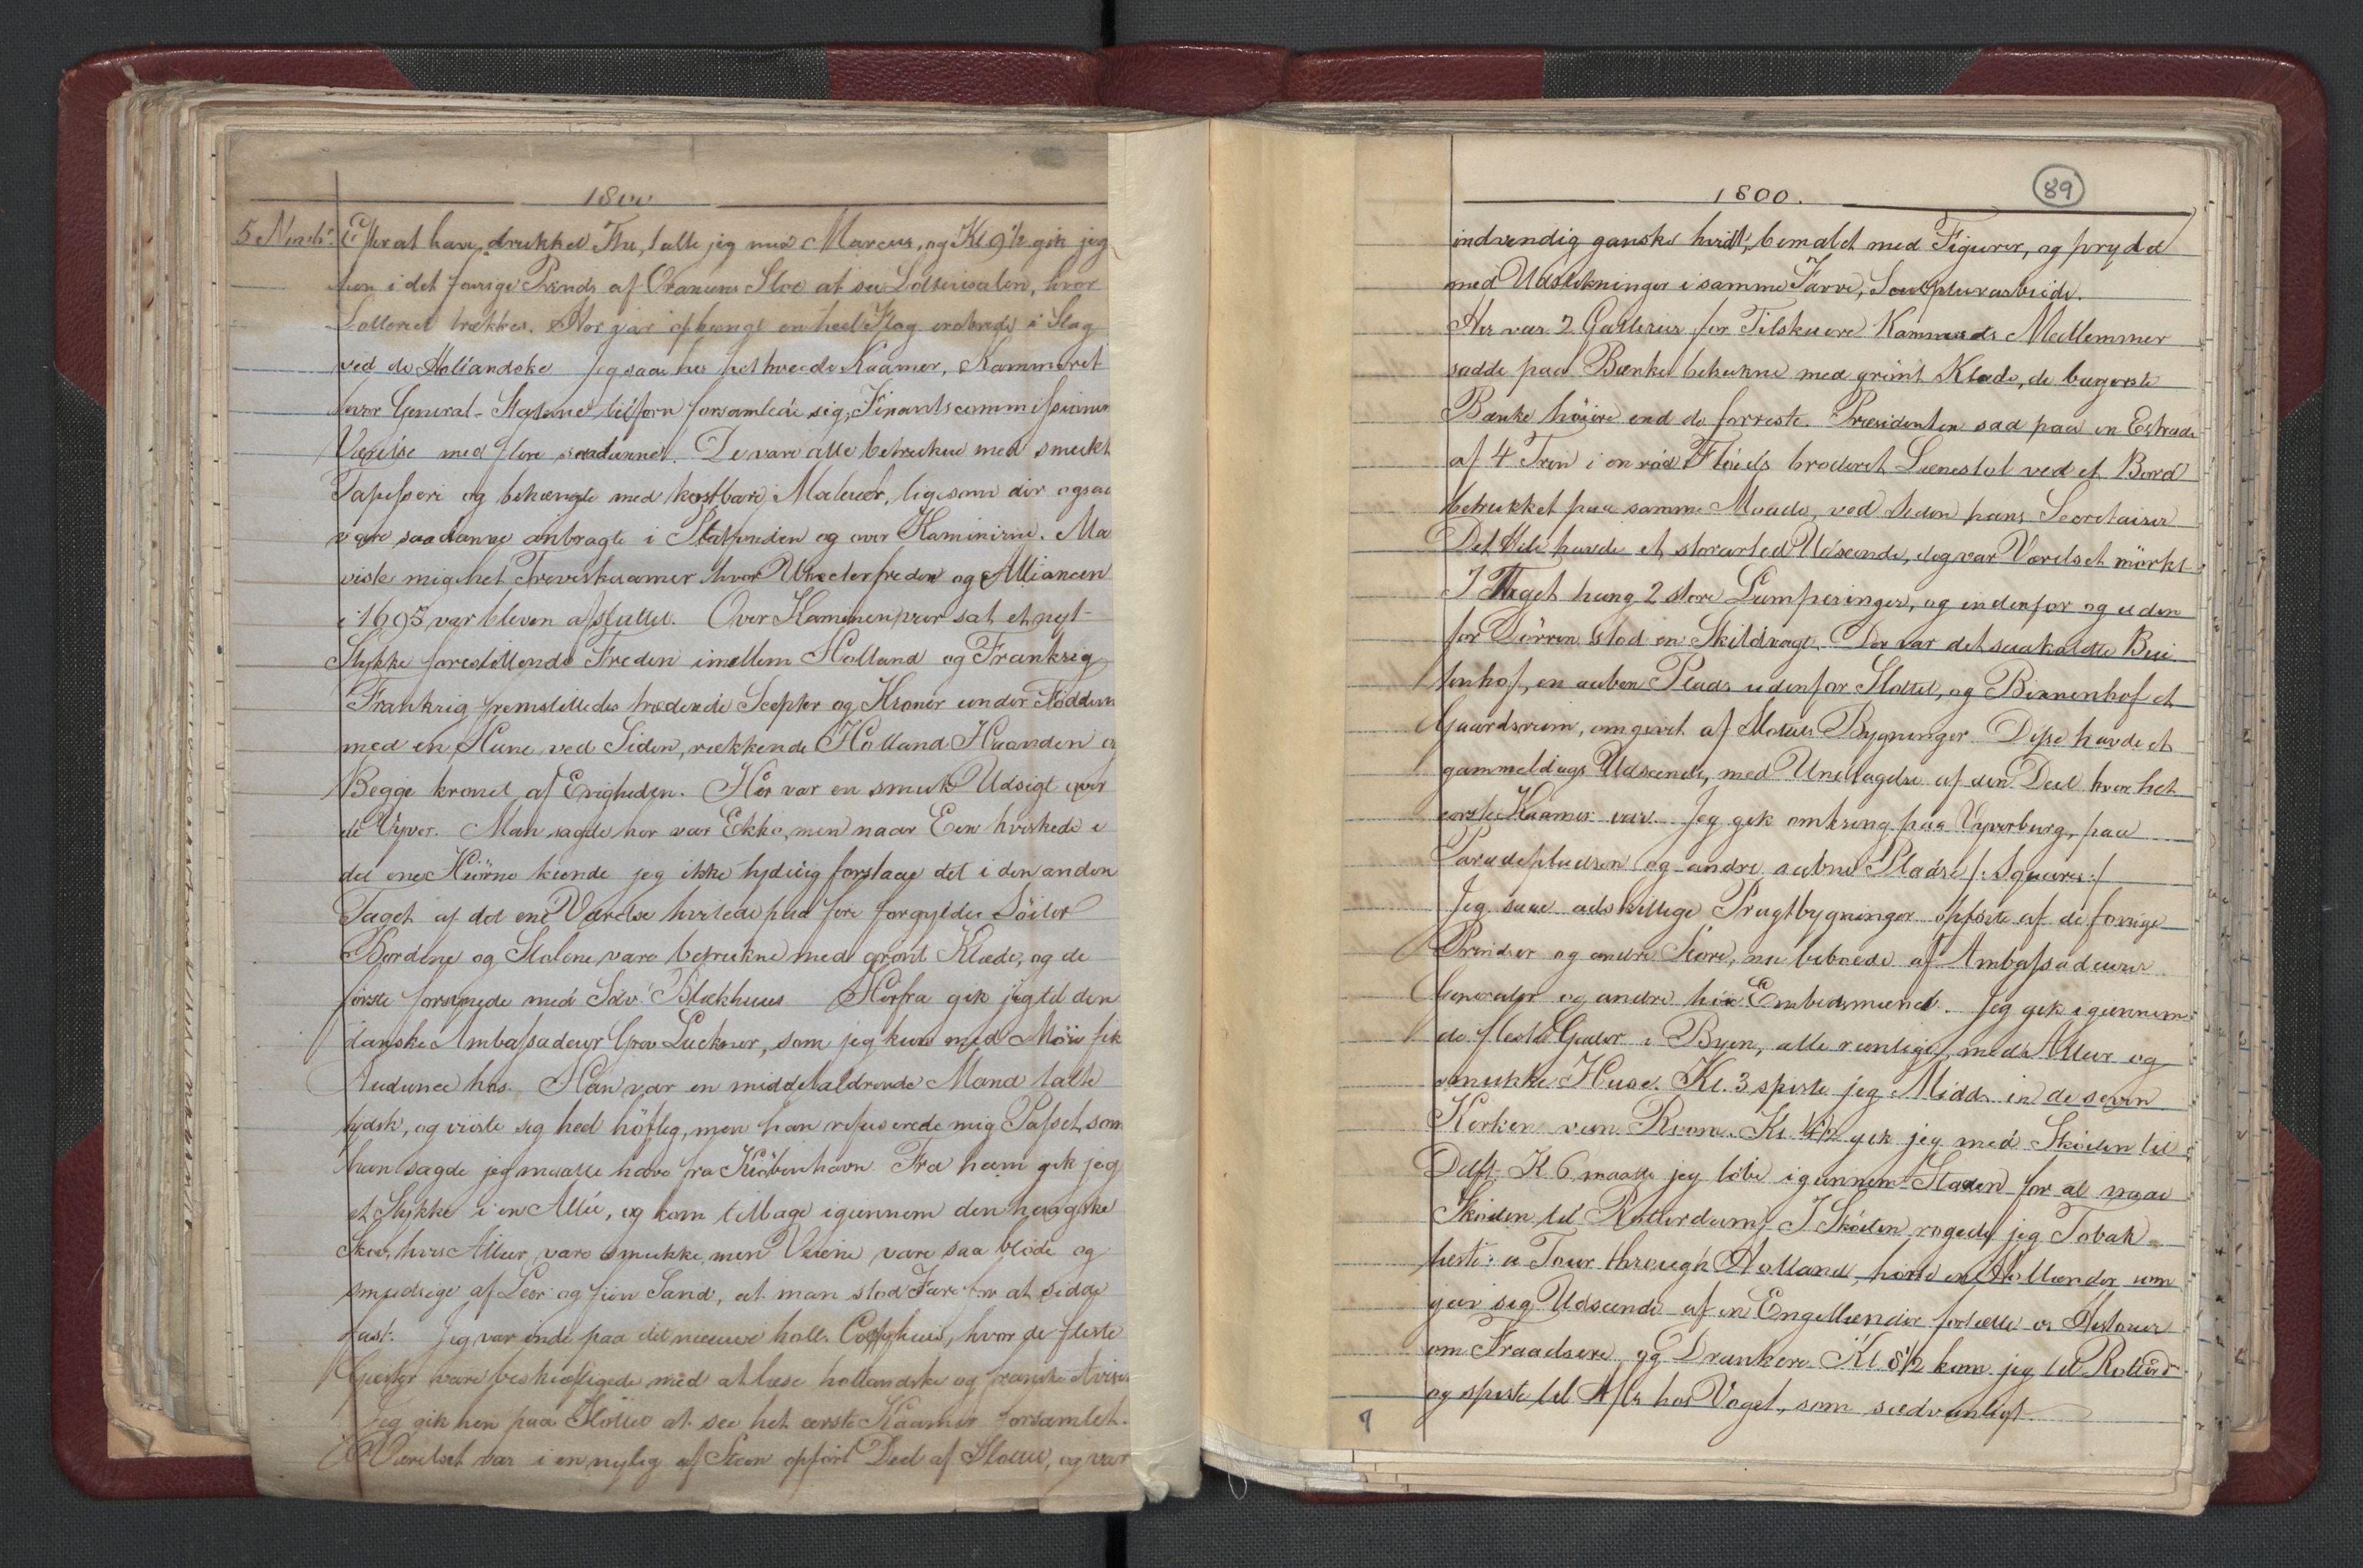 1800
5 Novbr. Efter at have drukket The, talte jeg med Marcus, og Kl 9½ gik jeg
hen i det forrige Prinds af Oraniens Slot at see Lotterisalen, hvor
Lotteriet trækkes. Her var ophængt en heel Flag erobrede i Slag
ved de Hollandske Jeg saae her het tweede Kaamer, Kammeret
hvor General-Staterne tilforn forsamlede sig, Finantscommissionens
Værelse med flere saadanne. De vare alle betrukne med smukt
Tapisseri og behængte med kostbare Malerier, ligesom der ogsaa
vare saadanne anbragte i Plafonden og over Kaminerne. Ma
viste mig het Treveskaamer hvor Utrecterfreden og Alliancen
i 1695 var bleven afsluttet. Over Kaminen var sat et nyt
Stykke forestillende Freden imellem Holland og Frankrig
Frankrig fremstilledes trædende Scepter og Kroner under Födderne
med en Hane ved Siden, rækkende Holland Haanden og
Begge kronet af Enigheden. Her var en smuk Udsigt over
de Vyver. Man sagde her var Ekko, men naar Een hviskede i
det ene Hiörne kunde jeg ikke tydelig forstaae det i den anden
Taget af det ene Værelse hvilede paa fire forgyldte Söiler
Bordene og Stolene vare betrukne med grönt Klæde, og de
förste forsynede med Sölv Blækhuus Herfra gik jeg til den
danske Ambassadeur Grev Luckner, som jeg kun med Möie fik
Audience hos. Han var en middelaldrende Mand talte
tydsk, og viiste sig heel höflig, men han refuserede mig Passet, som
han sagde jeg maatte have fra Kiöbenhavn. Fra ham gik jeg
et Stykke i en Allee, og kom tilbage igiennem den haagske
Skov, hvis Alleer vare smukke, men Veiene vare saa blöde og
smudsige af Leer og fiin Sand, at man stod Fare for at sidde
fast. Jeg var inde paa det nieuwe holl. Coffyhuis, hvor de fleste
Giæster vare beskiæftigede med at læse hollandske og franske Aviser
Jeg gik hen paa Slottet at see het eerste Kaamer forsamlet.
Værelset var i en nylig af Steen opfört Deel af Slottet, og var
1800.
89
indvendig ganske hvidt, bemalet med Figurer, og prydet
med Udstikninger i samme Farve, Sculpturarbeide.
Her var 2 Gallerier for Tilskuere Kammerets Medlemmer
sadde paa Bænke betrukne med grönt Klæde, de bagerste
Bænke höiere end de forreste. Præsidenten sad paa en Estrade
af 4 Trin i en röd Flöiels broderet Lænestol ved et Bord
betrukket paa samme Maade, ved Siden hans Secretairer
Det Hele havde et storartet Udseende, dog var Værelset mörkt
I Taget hang 2 store Lamperinger, og indenfor og uden
for Dörren stod en Skildvagt. Der var det saakaldte Bui
tenhof, en aaben Plads udenfor Slottet, og Binnenhof et
Gaardsrum, omgivet af Slottets Bygninger. Disse havde et
gammeldags Udseende, med Undtagelse af den Deel hvor het
eerste Kaamer var. Jeg gik omkring paa Vyverburg, paa
Paradepladsen og andre aabne Pladse /: Squares :/
Jeg saae adskillige Pragtbygninger opförte af de forrige
Prindser og andre Store, nu beboede af Ambassadeurer
Generaler og andre höie Embedsmænd. Jeg gik igiennem
de fleste Gader i Byen, alle reenlige, med Alleer og
smukke Huse. Kl. 3 spiste jeg Midd. in de seven
Kerken van Room. Kl. 4½ gik jeg med Skuiten til
Delft. Kl 6 maatte jeg löbe igiennem Staden for at naae
Skuiten til Rotterdam. I Skuiten rögede jeg Tobak
læste: a Tour through Holland, hörte en Hollænder som
gav sig Udseende af en Engellænder fortælle os Historier
om Fraadsere og Drankere. Kl 8½ kom jeg til Rotterd
og spiste til Aften hos Voget, som sædvanligt.
7